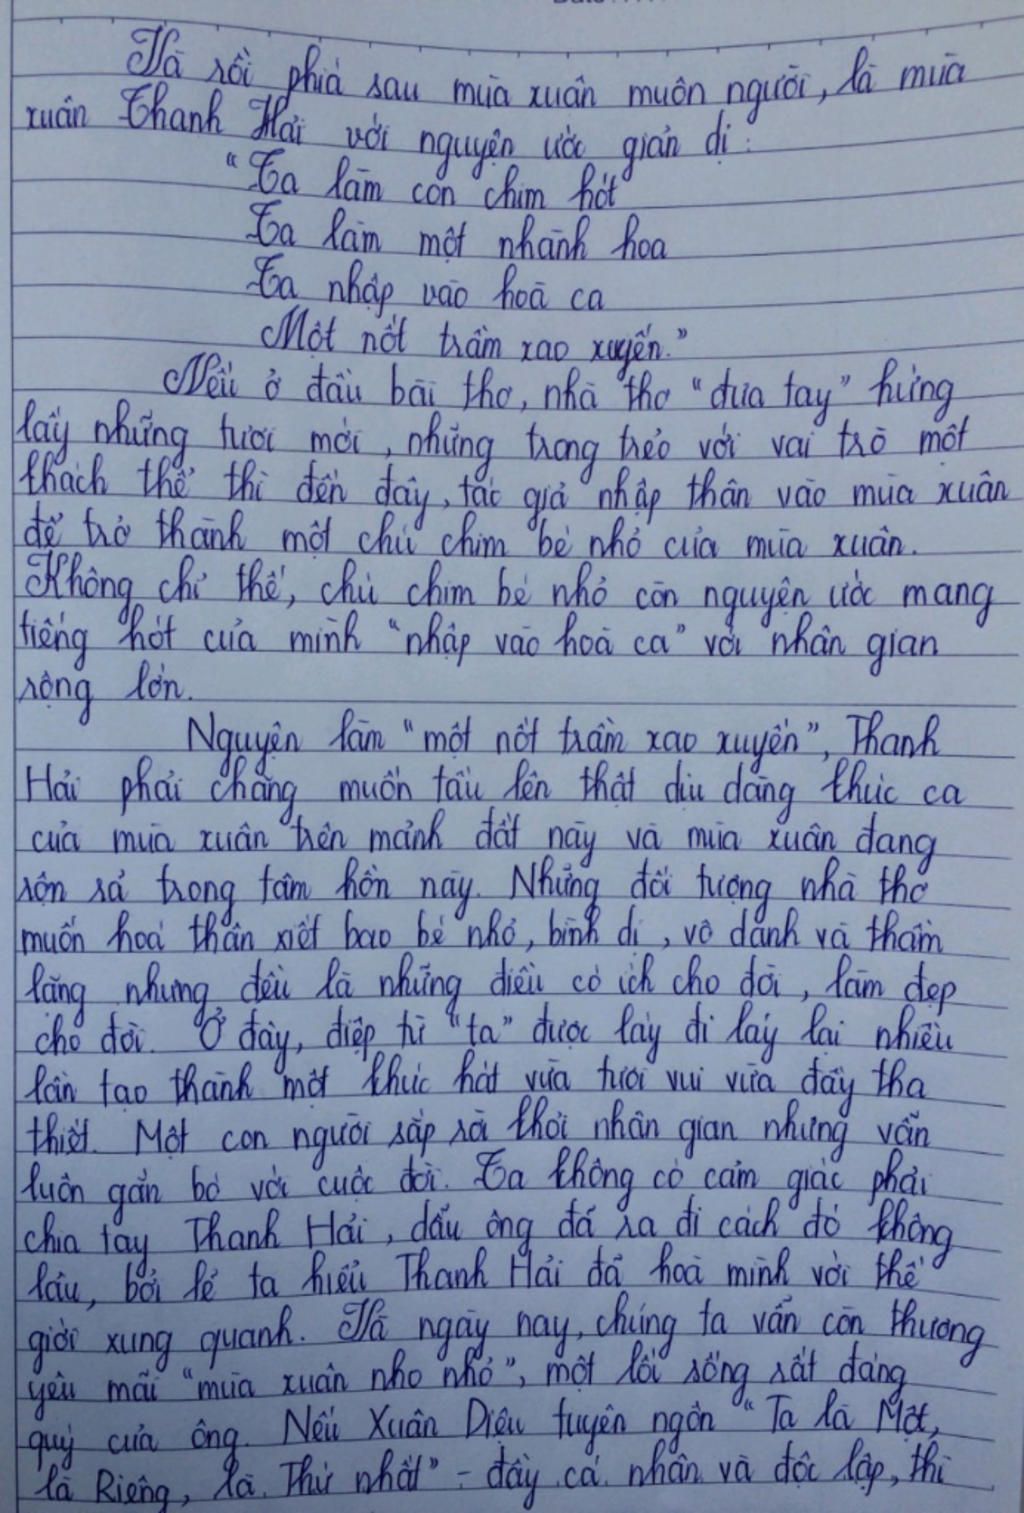 Và rồi phía sau mùa xuân muôn người, là mùa
xuân Thanh Hải với nguyện ước giản dị:
"Ta làm con chim hót
Ta làm một nhành hoa
Ta nhập vào hoà ca
Một nốt trầm xao xuyến."
Nếu ở đầu bài thơ, nhà thơ "đưa tay" hứng
lấy những tươi mới, những trong trẻo với vai trò một
khách thể thì đến đây, tác giả nhập thân vào mùa xuân
để trở thành một chú chim bé nhỏ của mùa xuân.
Không chỉ thế, chú chim bé nhỏ còn nguyện ước mang
tiếng hót của mình "nhập vào hoà ca" với nhân gian
rộng lớn.
Nguyện làm "một nốt trầm xao xuyến", Thanh
Hải phải chăng muốn tấu lên thật dịu dàng khúc ca
của mùa xuân trên mảnh đất này và mùa xuân đang
rộn rã trong tâm hồn này. Những đối tượng nhà thơ
muốn hoá thân xiết bao bé nhỏ, bình dị, vô danh và thầm
lặng nhưng đều là những điều có ích cho đời, làm đẹp
cho đời. Ở đây, điệp từ "ta" được láy đi láy lại nhiều
lần tạo thành một khúc hát vừa tươi vui vừa đầy tha
thiết. Một con người sắp rời khỏi nhân gian nhưng vẫn
luôn gắn bó với cuộc đời. Ta không có cảm giác phải
chia tay Thanh Hải, dẫu ông đã ra đi cách đó không
lâu, bởi lẽ ta hiểu Thanh Hải đã hoà mình với thế
giới xung quanh. Và ngày nay, chúng ta vẫn còn thương
yêu mãi "mùa xuân nho nhỏ", một lối sống rất đáng
quý của ông. Nếu Xuân Diệu tuyên ngôn "Ta là Một,
là Riêng, là Thứ nhất" - đầy cá nhân và độc lập, thì